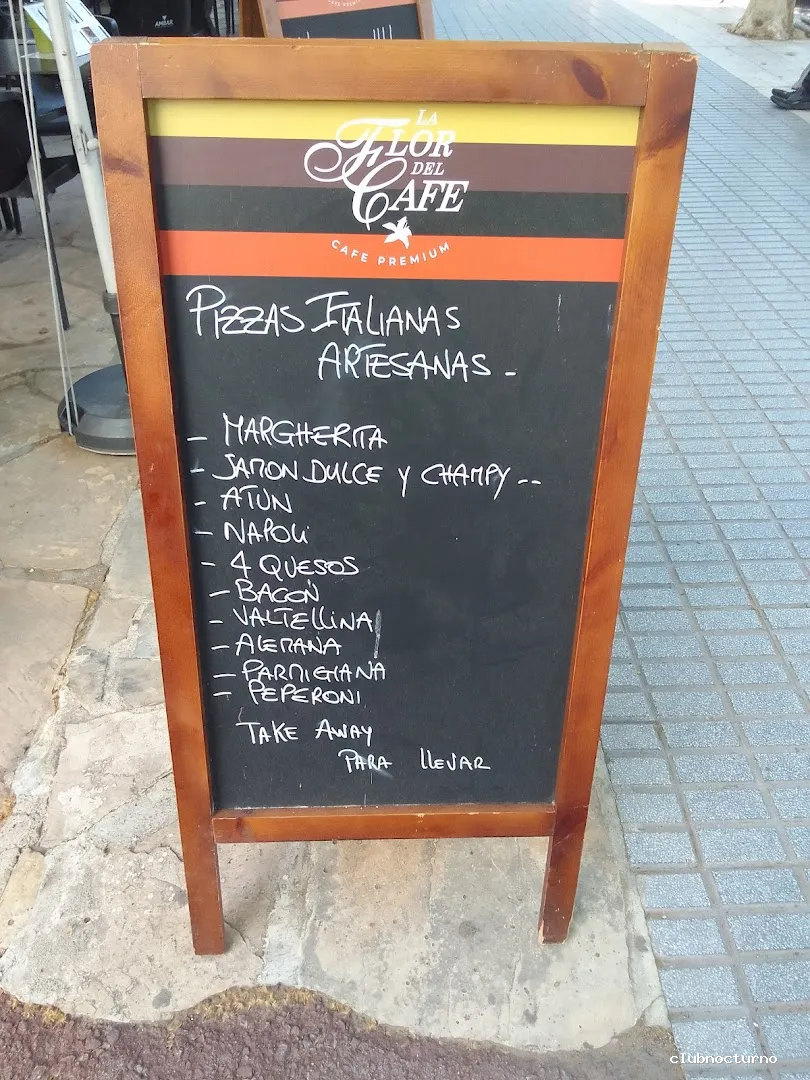 AMBAR
CAFE PREMIUM
LA
FLOR
DEL
CAFE
CAFE PREMIUM
PIZZAS ITALIANAS
ARTESANAS -
- MARGHERITA
- JAMON DULCE Y CHAMPY --
- ATUN
- NAPOLI
- 4 QUESOS
- BACON
- VALTELLINA
- ALEMANA
- PARMIGIANA
- PEPERONI
TAKE AWAY
PARA LLEVAR
clubnocturno